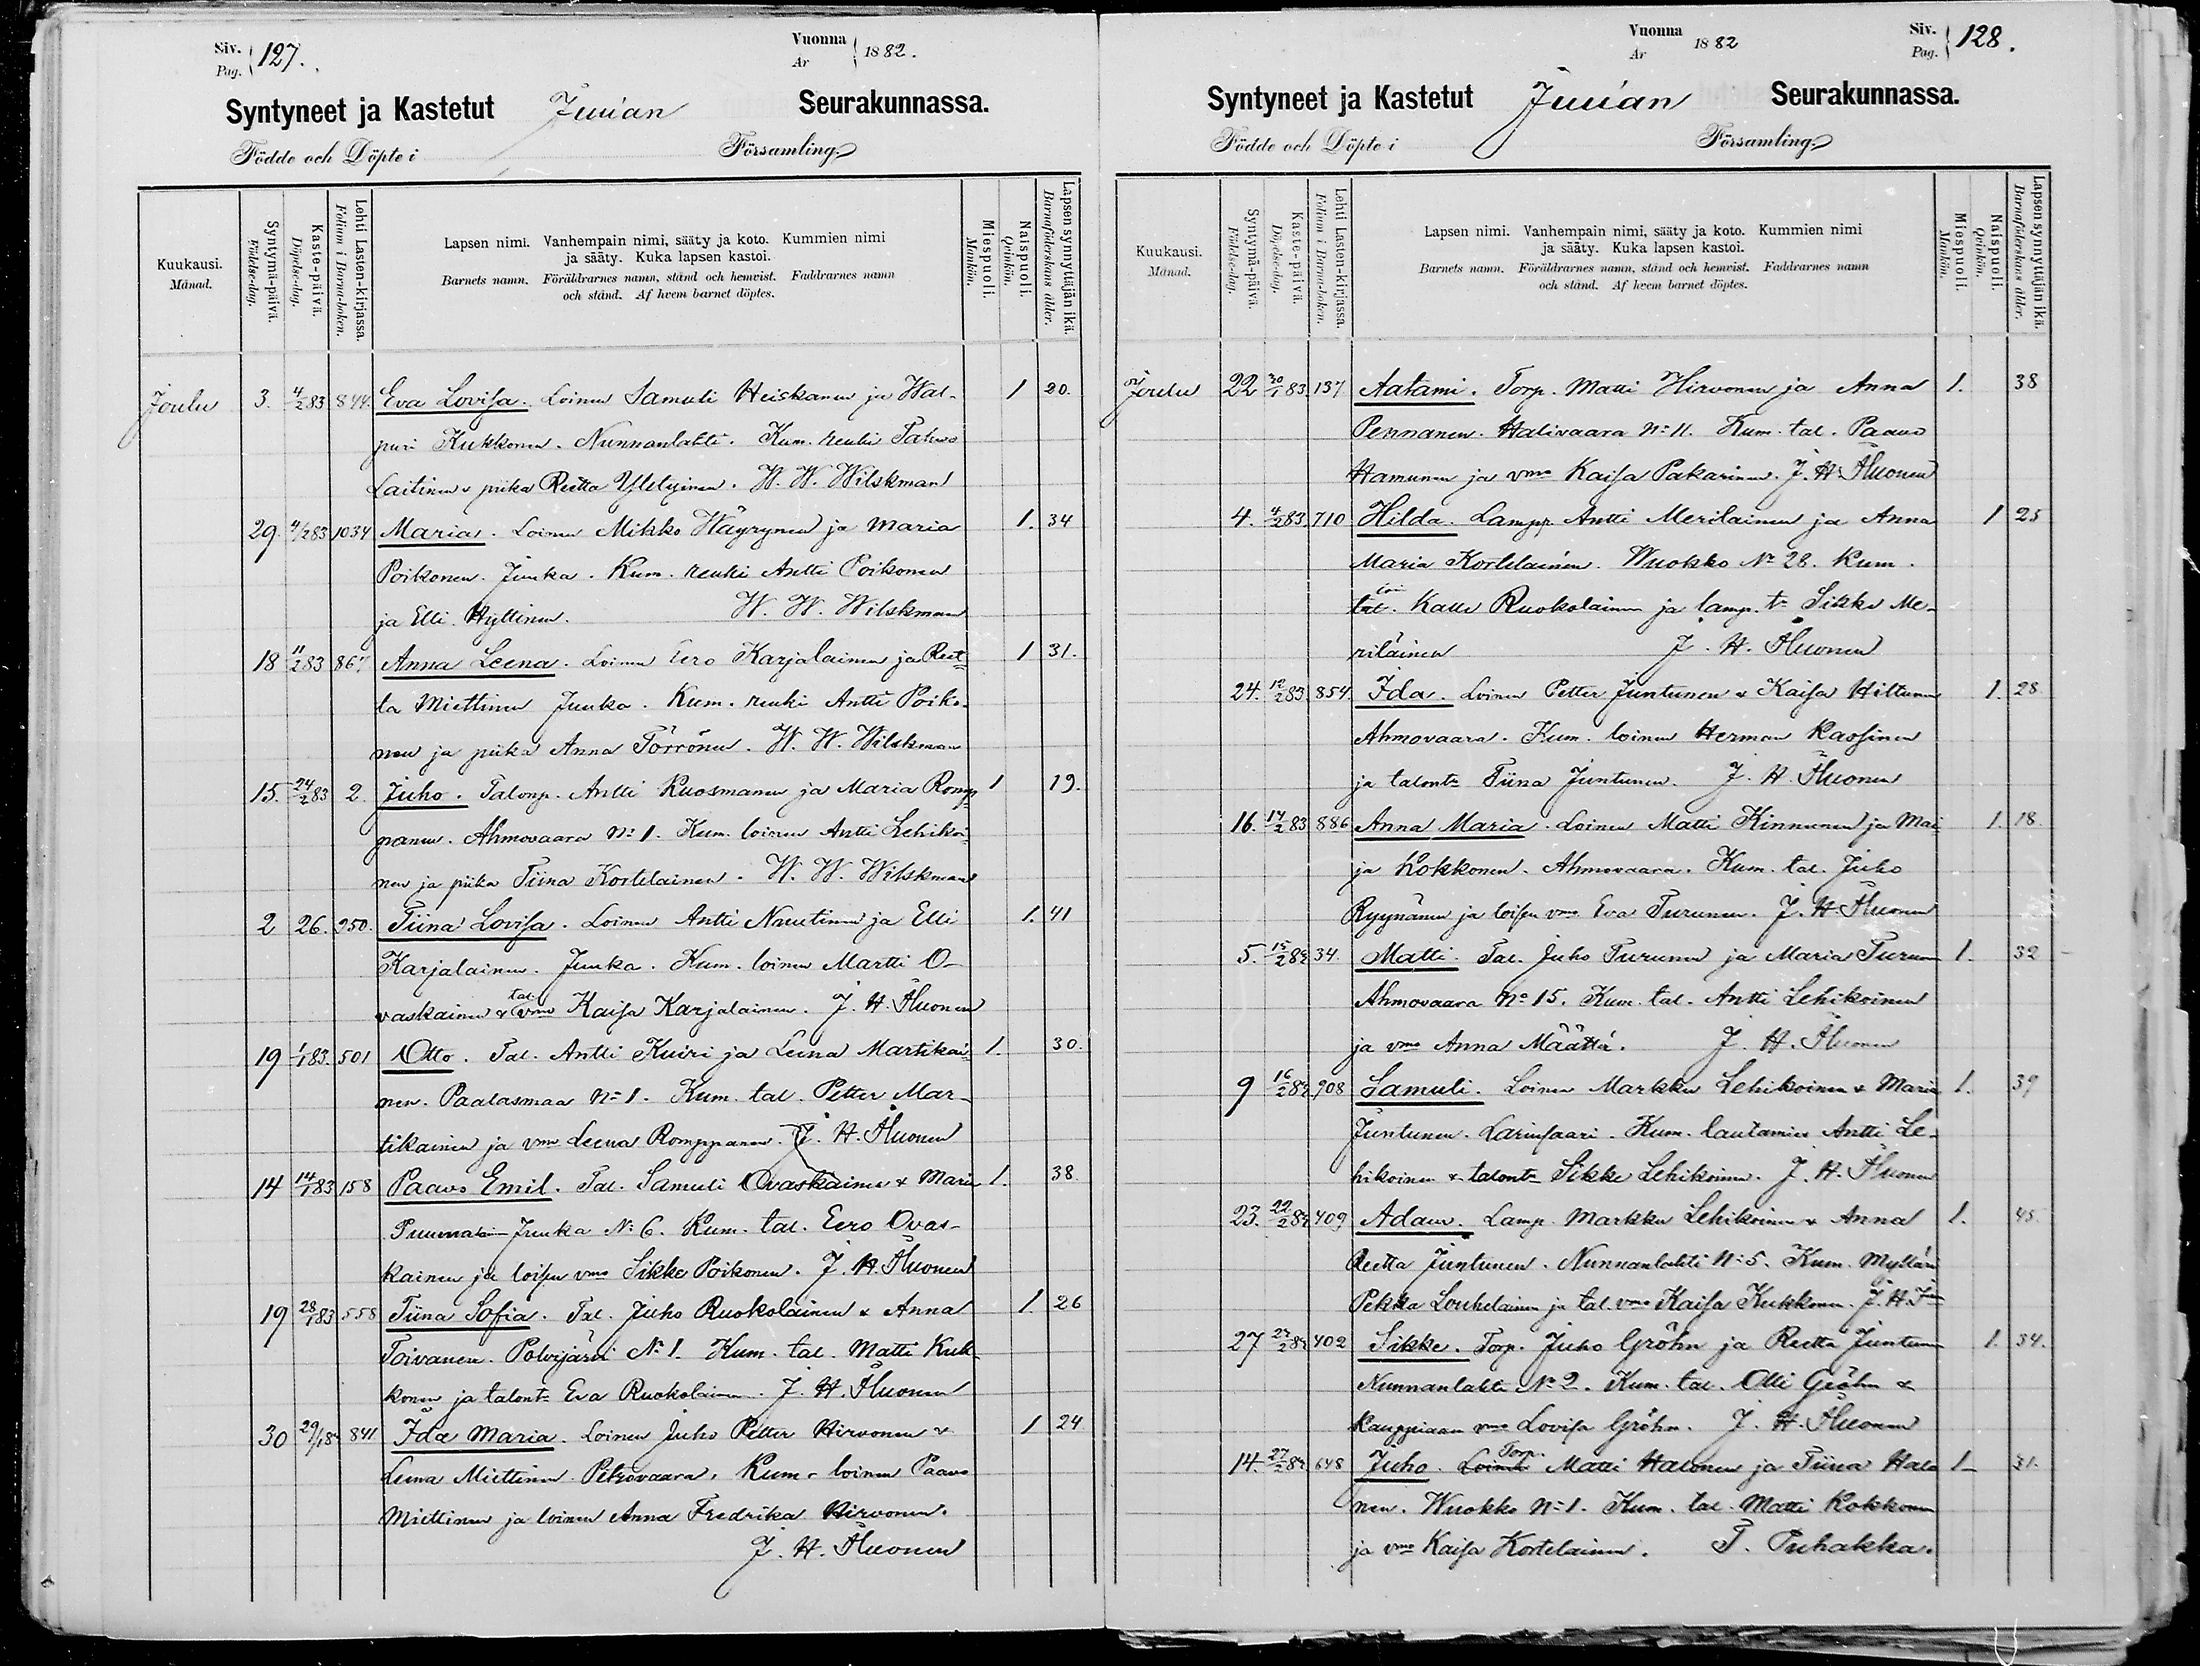 Siv. Pag. 127.
Vuonna År 1882.
Syntyneet ja Kastetut Juuan Seurakunnassa.
Födde och Döpte i Församling.
Kuukausi. Månad.
Syntymä-päivä. Födelse-dag.
Kaste-päivä. Döpelse-dag.
Lehti Lasten-kirjassa. Folium i Barna-boken.
Lapsen nimi. Vanhempain nimi, sääty ja koto. Kummien nimi
ja sääty. Kuka lapsen kastoi.
Barnets namn. Föräldrarnes namn, stånd och hemvist. Faddrarnes namn
och stånd. Af hvem barnet döptes.
Miespuoli. Mankön.
Naispuoli. Qvinkön.
Lapsen synnyttäjän ikä. Barnaföderskans ålder.
Joulu 3. 4/2 83 844. Eva Lovisa. Loinen Samuli Heiskanen ja Wal- 1 20.
puri Kukkonen. Nunnanlahti. Kum. renki Tahvo
Laitinen & piika Reetta Yletyinen. W. W. Wilskman
29. 4/2 83 1034 Maria. Loinen Mikko Häyrynen ja Maria 1. 34
Poikonen. Juuka. Kum. renki Antti Poikonen
ja Elli Hyttinen. W. W. Wilskman
18 11/2 83 867 Anna Leena. Loinen Eero Karjalainen ja Reet- 1 31.
ta Miettinen Juuka. Kum. renki Antti Poiko-
nen ja piika Anna Törrönen. W. W. Wilskman
15. 24/2 83 2. Juho. Talonp. Antti Kuosmanen ja Maria Romp- 1 19.
panen. Ahmovaara No 1. Kum. loinen Antti Lehikoi-
nen ja piika Tiina Kortelainen. W. W. Wilskman
2 26. 950. Tiina Lovisa. Loinen Antti Nuutinen ja Elli 1. 41
Karjalainen. Juuka. Kum. loinen Martti O-
vaskainen & tal. vmo Kaisa Karjalainen. J. H. Åhuonen
19 1/1 83. 501 Otto. Tal. Antti Kuiri ja Leena Martikai- 1. 30.
nen. Paalasmaa No 1. Kum. tal. Petter Mar-
tikainen ja vmo Leena Romppanen. J. H. Åhuonen
14 14/1 83 158 Paavo Emil. Tal. Samuli Ovaskainen & Maria 1. 38
Juuka No 6. Kum. tal. Eero Ovas-
kainen ja loisen vmo Sikke Poikonen. J. H. Åhuonen
19 28/1 83 558 Tiina Sofia. Tal. Juho Ruokolainen & Anna 1 26
Toivanen. Polvijärvi No 1. Kum. tal. Matti Kuk-
konen ja talont. Eva Ruokolainen. J. H. Åhuonen
30 841 Ida Maria. Loinen Juho Petter Hirvonen & 1 24
Leena Miettinen Petrovaara. Kum. loinen Paavo
Miettinen ja loinen Anna Fredrika Hirvonen.
J. H. Åhuonen
Vuonna År 1882
Siv. Pag. 128.
Syntyneet ja Kastetut Juuan Seurakunnassa.
Födde och Döpte i Församling.
Kuukausi. Månad.
Syntymä-päivä. Födelse-dag.
Kaste-päivä. Döpelse-dag.
Lehti Lasten-kirjassa. Folium i Barna-boken.
Lapsen nimi. Vanhempain nimi, sääty ja koto. Kummien nimi
ja sääty. Kuka lapsen kastoi.
Barnets namn. Föräldrarnes namn, stånd och hemvist. Faddrarnes namn
och stånd. Af hvem barnet döptes.
Miespuoli. Mankön.
Naispuoli. Qvinkön.
Lapsen synnyttäjän ikä. Barnaföderskans ålder.
Joulu 22 30/1 83. 137 Aatami. Torp. Matti Hirvonen ja Anna 1. 38
Pennanen. Halivaara No 11. Kum. tal. Paavo
Hamunen ja vmo Kaisa Pakarinen. J. H. Åhuonen
4. 4/2 83 710 Hilda. Lampp. Antti Meriläinen ja Anna 1 25
Maria Kortelainen. Wuokko No 28. Kum.
Kalle Ruokolainen ja lamp. t. Sikke Me-
riläinen J. H. Åhuonen
24. 12/2 83. 854. Ida. Loinen Petter Juntunen & Kaisa Hiltunen 1. 28
Ahmovaara. Kum. loinen Herman Kassinen
ja talont. Tiina Juntunen. J. H. Åhuonen
16. 14/2 83 886 Anna Maria. Loinen Matti Kinnunen ja Mai- 1. 18.
ja Kokkonen. Ahmovaara. Kum. tal. Juho
Ryynänen ja loisen vmo Eva Turunen. J. H. Åhuonen
5. 15/2 83 34. Matti. Tal. Juho Turunen ja Maria Turunen 1. 32
Ahmovaara No 15. Kum. tal. Antti Lehikoinen
ja vmo Anna Määttä. J. H. Åhuonen
9 16/2 83 908 Samuli. Loinen Markku Lehikoinen & Maria 1. 39
Juntunen. Larinsaari. Kum. lautamies Antti Le-
hikoinen & talont. Sikke Lehikoinen. J. H. Åhuonen
23. 22/2 83 409 Adam. Lamp. Markku Lehikoinen & Anna 1. 45.
Reetta Juntunen. Nunnanlahti No 5. Kum. Mylläri
Pekka Louhelainen ja tal. vmo Kaisa Kukkonen. J. H.
27 402 Sikke. Torp. Juho Gröhn ja Reetta Juntunen 1. 34.
Nunnanlahti No 2. Kum. tal. Olli Gröhn &
kauppiaan vmo Lovisa Gröhn. J. H. Åhuonen
14. 27/2 83 648 Juho. Loinen Torp. Matti Halonen ja Tiina Halo- 1 31.
nen. Wuokko No 1. Kum. tal. Matti Kokkonen
ja vmo Kaisa Kortelainen. T. Puhakka.